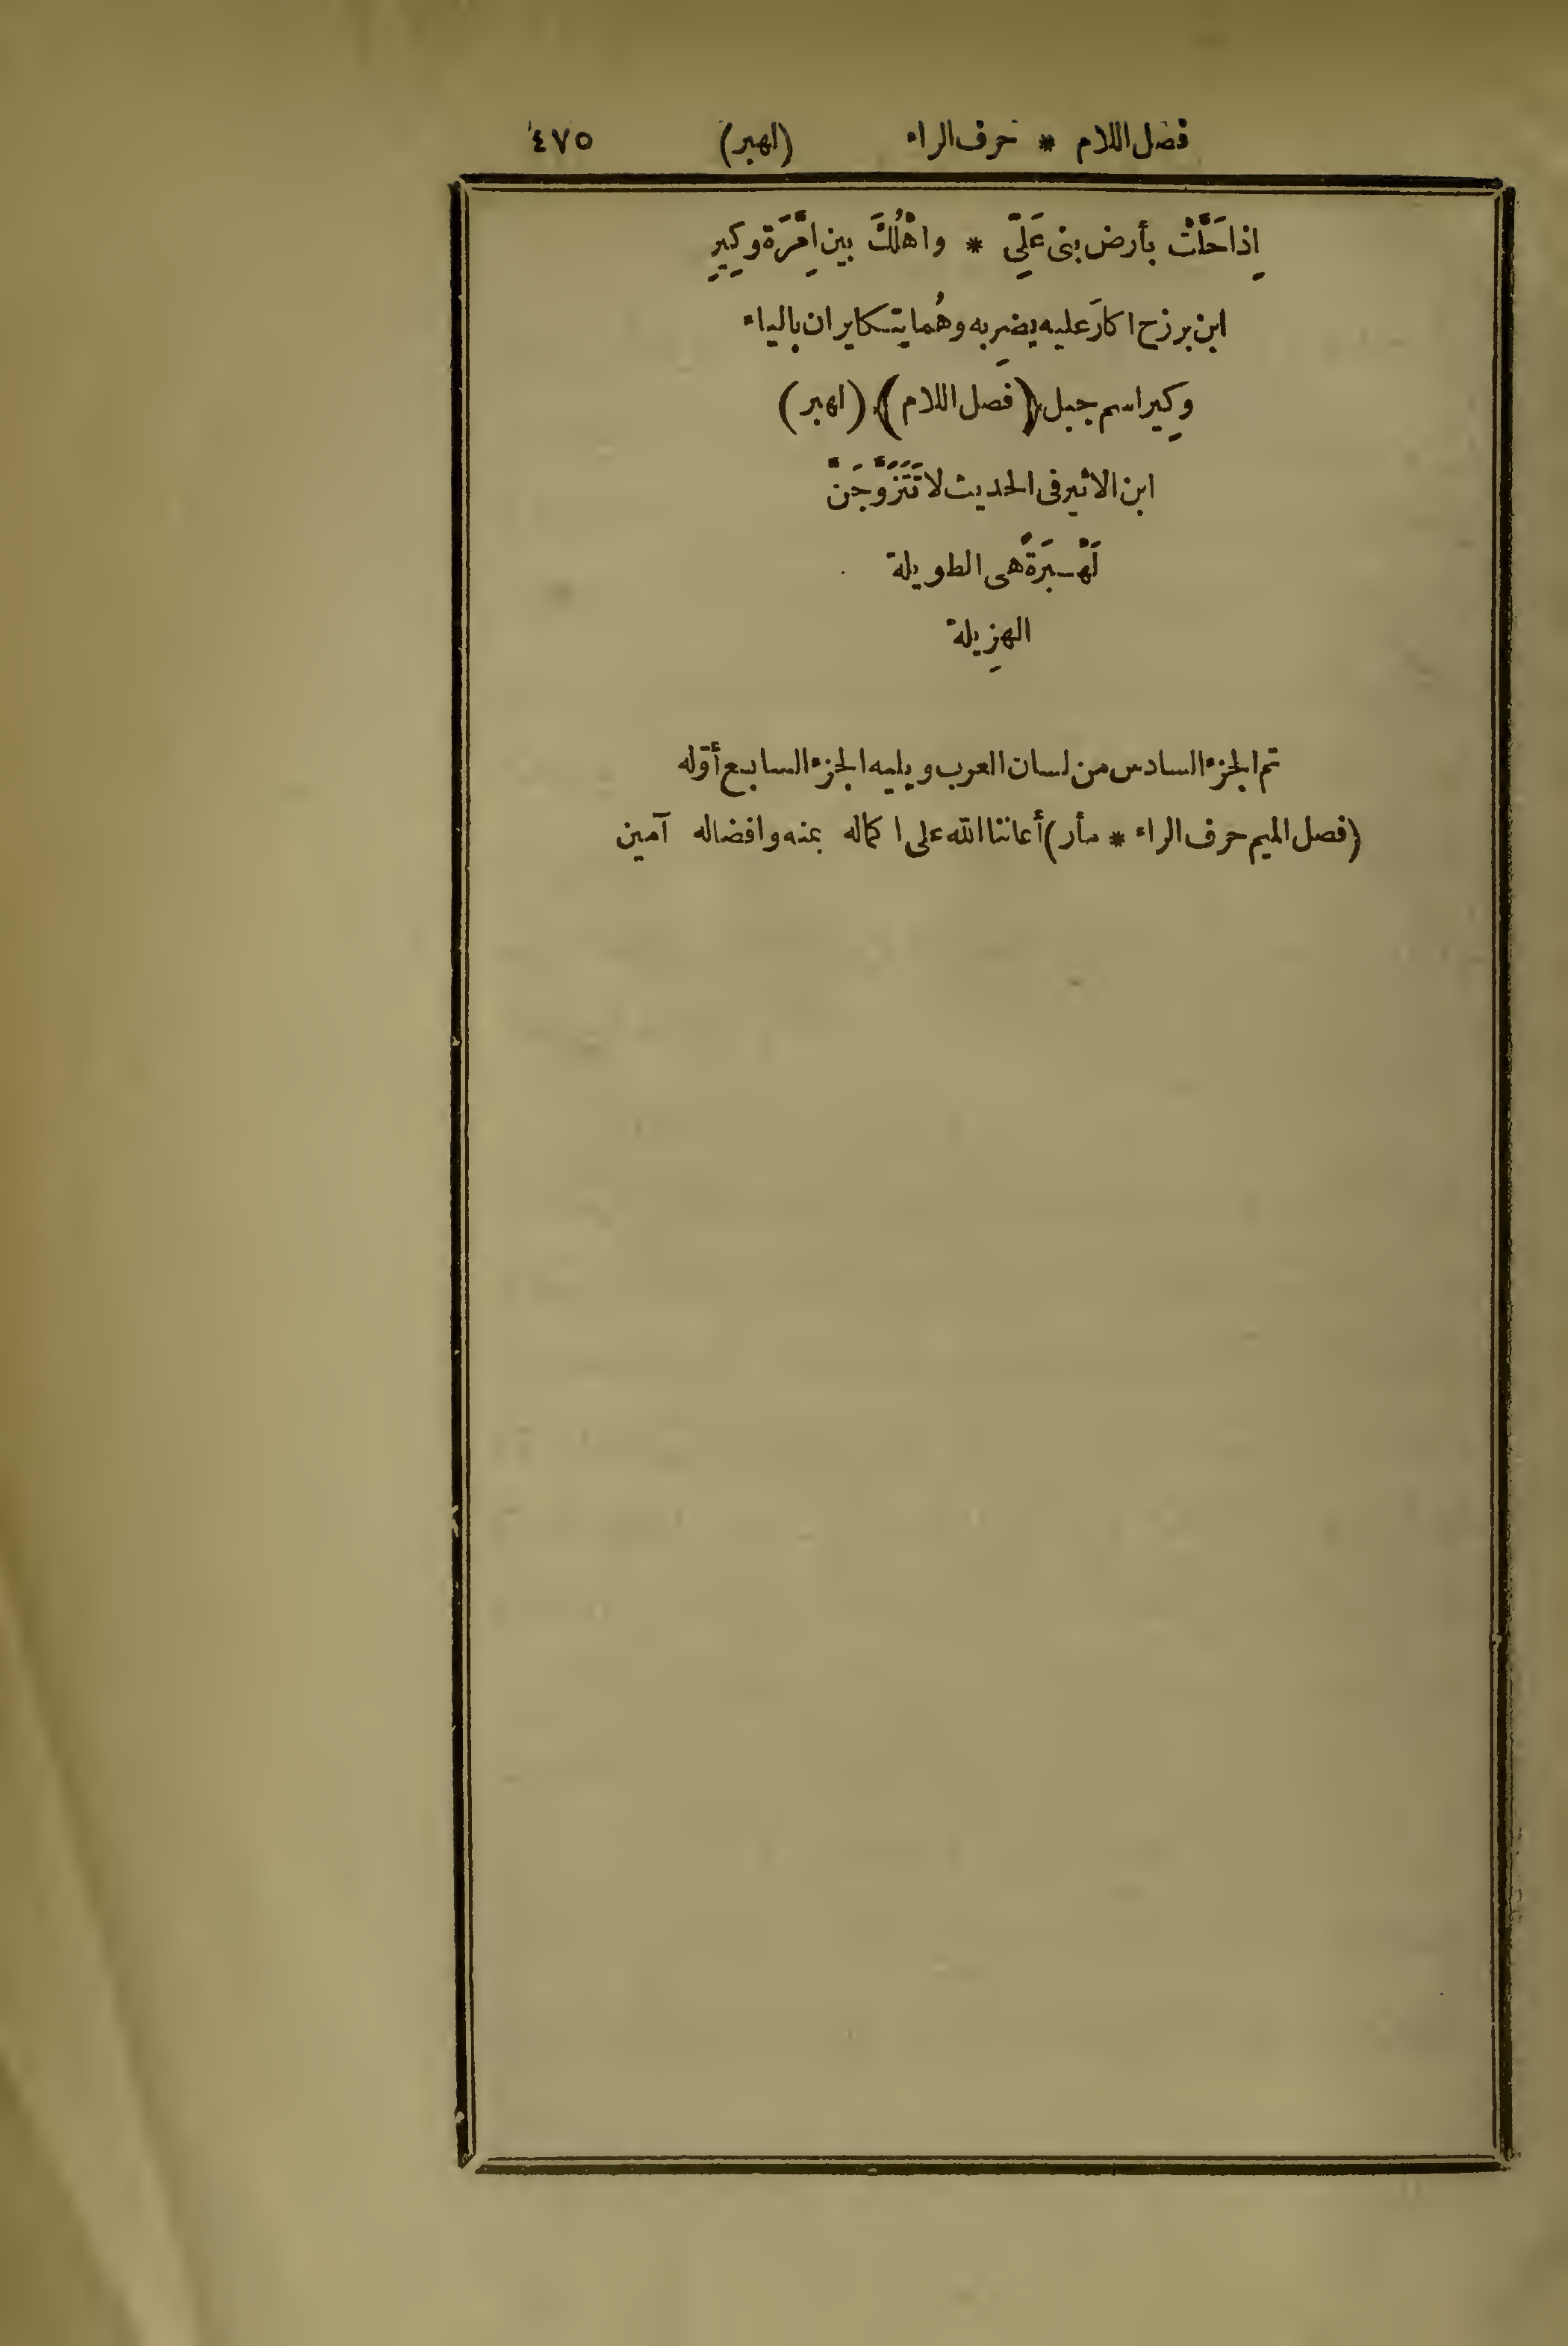 فصل اللام * حرف الراء (لهبر) ٤٧٥
إِذا حَلَّتْ بأرض بنى عَلِىّ * واهْلُكَ بين اِمَّرَة وكِيرِ
ابن بزرح اكارَ عليه يضرِبه وهُما يتكايران بالياء
وكِير اسم جبل (فصل اللام) (لهبر)
ابن الاثير فى الحديث لا تَتَزَوَّجَنَّ
لَهْبَرَةً هى الطويلة
الهزِيلة
تم الجزء السادس من لسان العرب ويليه الجزء السابع أوّله
(فصل الميم حرف الراء * مأر) أعاننا الله على اكماله بمنه وافضاله آمين